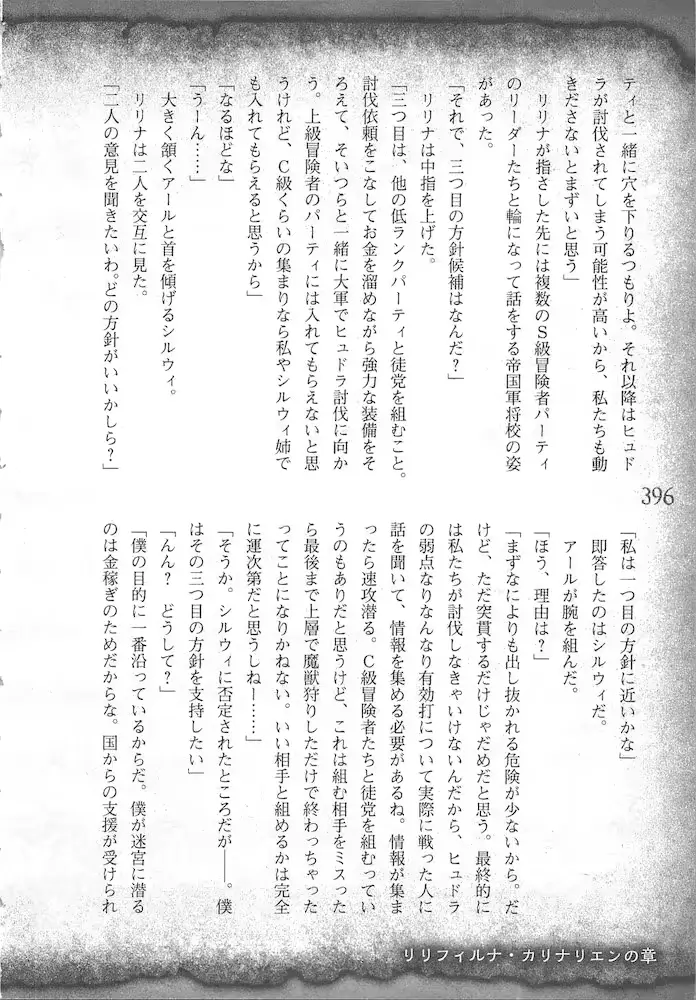 ティと一緒に穴を下りるつもりよ。それ以降はヒュド
ラが討伐されてしまう可能性が高いから、私たちも動
きださないとまずいと思う」
リリナが指さした先には複数のＳ級冒険者パーティ
のリーダーたちと輪になって話をする帝国軍将校の姿
があった。
「それで、三つ目の方針候補はなんだ？」
リリナは中指を上げた。
「三つ目は、他の低ランクパーティと徒党を組むこと。
討伐依頼をこなしてお金を溜めながら強力な装備をそ
ろえて、そいつらと一緒に大軍でヒュドラ討伐に向か
う。上級冒険者のパーティには入れてもらえないと思
うけれど、Ｃ級くらいの集まりなら私やシルウィ姉で
も入れてもらえると思うから」
「なるほどな」
「うーん……」
大きく頷くアールと首を傾げるシルウィ。
リリナは二人を交互に見た。
「二人の意見を聞きたいわ。どの方針がいいかしら？」
「私は一つ目の方針に近いかな」
即答したのはシルウィだ。
アールが腕を組んだ。
「ほう、理由は？」
「まずなによりも出し抜かれる危険が少ないから。だ
けど、ただ突貫するだけじゃだめだと思う。最終的に
は私たちが討伐しなきゃいけないんだから、ヒュドラ
の弱点なりなんなり有効打について実際に戦った人に
話を聞いて、情報を集める必要があるね。情報が集ま
ったら速攻潜る。Ｃ級冒険者たちと徒党を組むってい
うのもありだと思うけど、これは組む相手をミスった
ら最後まで上層で魔獣狩りしただけで終わっちゃった
ってことになりかねない。いい相手と組めるかは完全
に運次第だと思うしねー……」
「そうか。シルウィに否定されたところだが――。僕
はその三つ目の方針を支持したい」
「んん？　どうして？」
「僕の目的に一番沿っているからだ。僕が迷宮に潜る
のは金稼ぎのためだからな。国からの支援が受けられ
396
リリフィルナ・カリナリエンの章